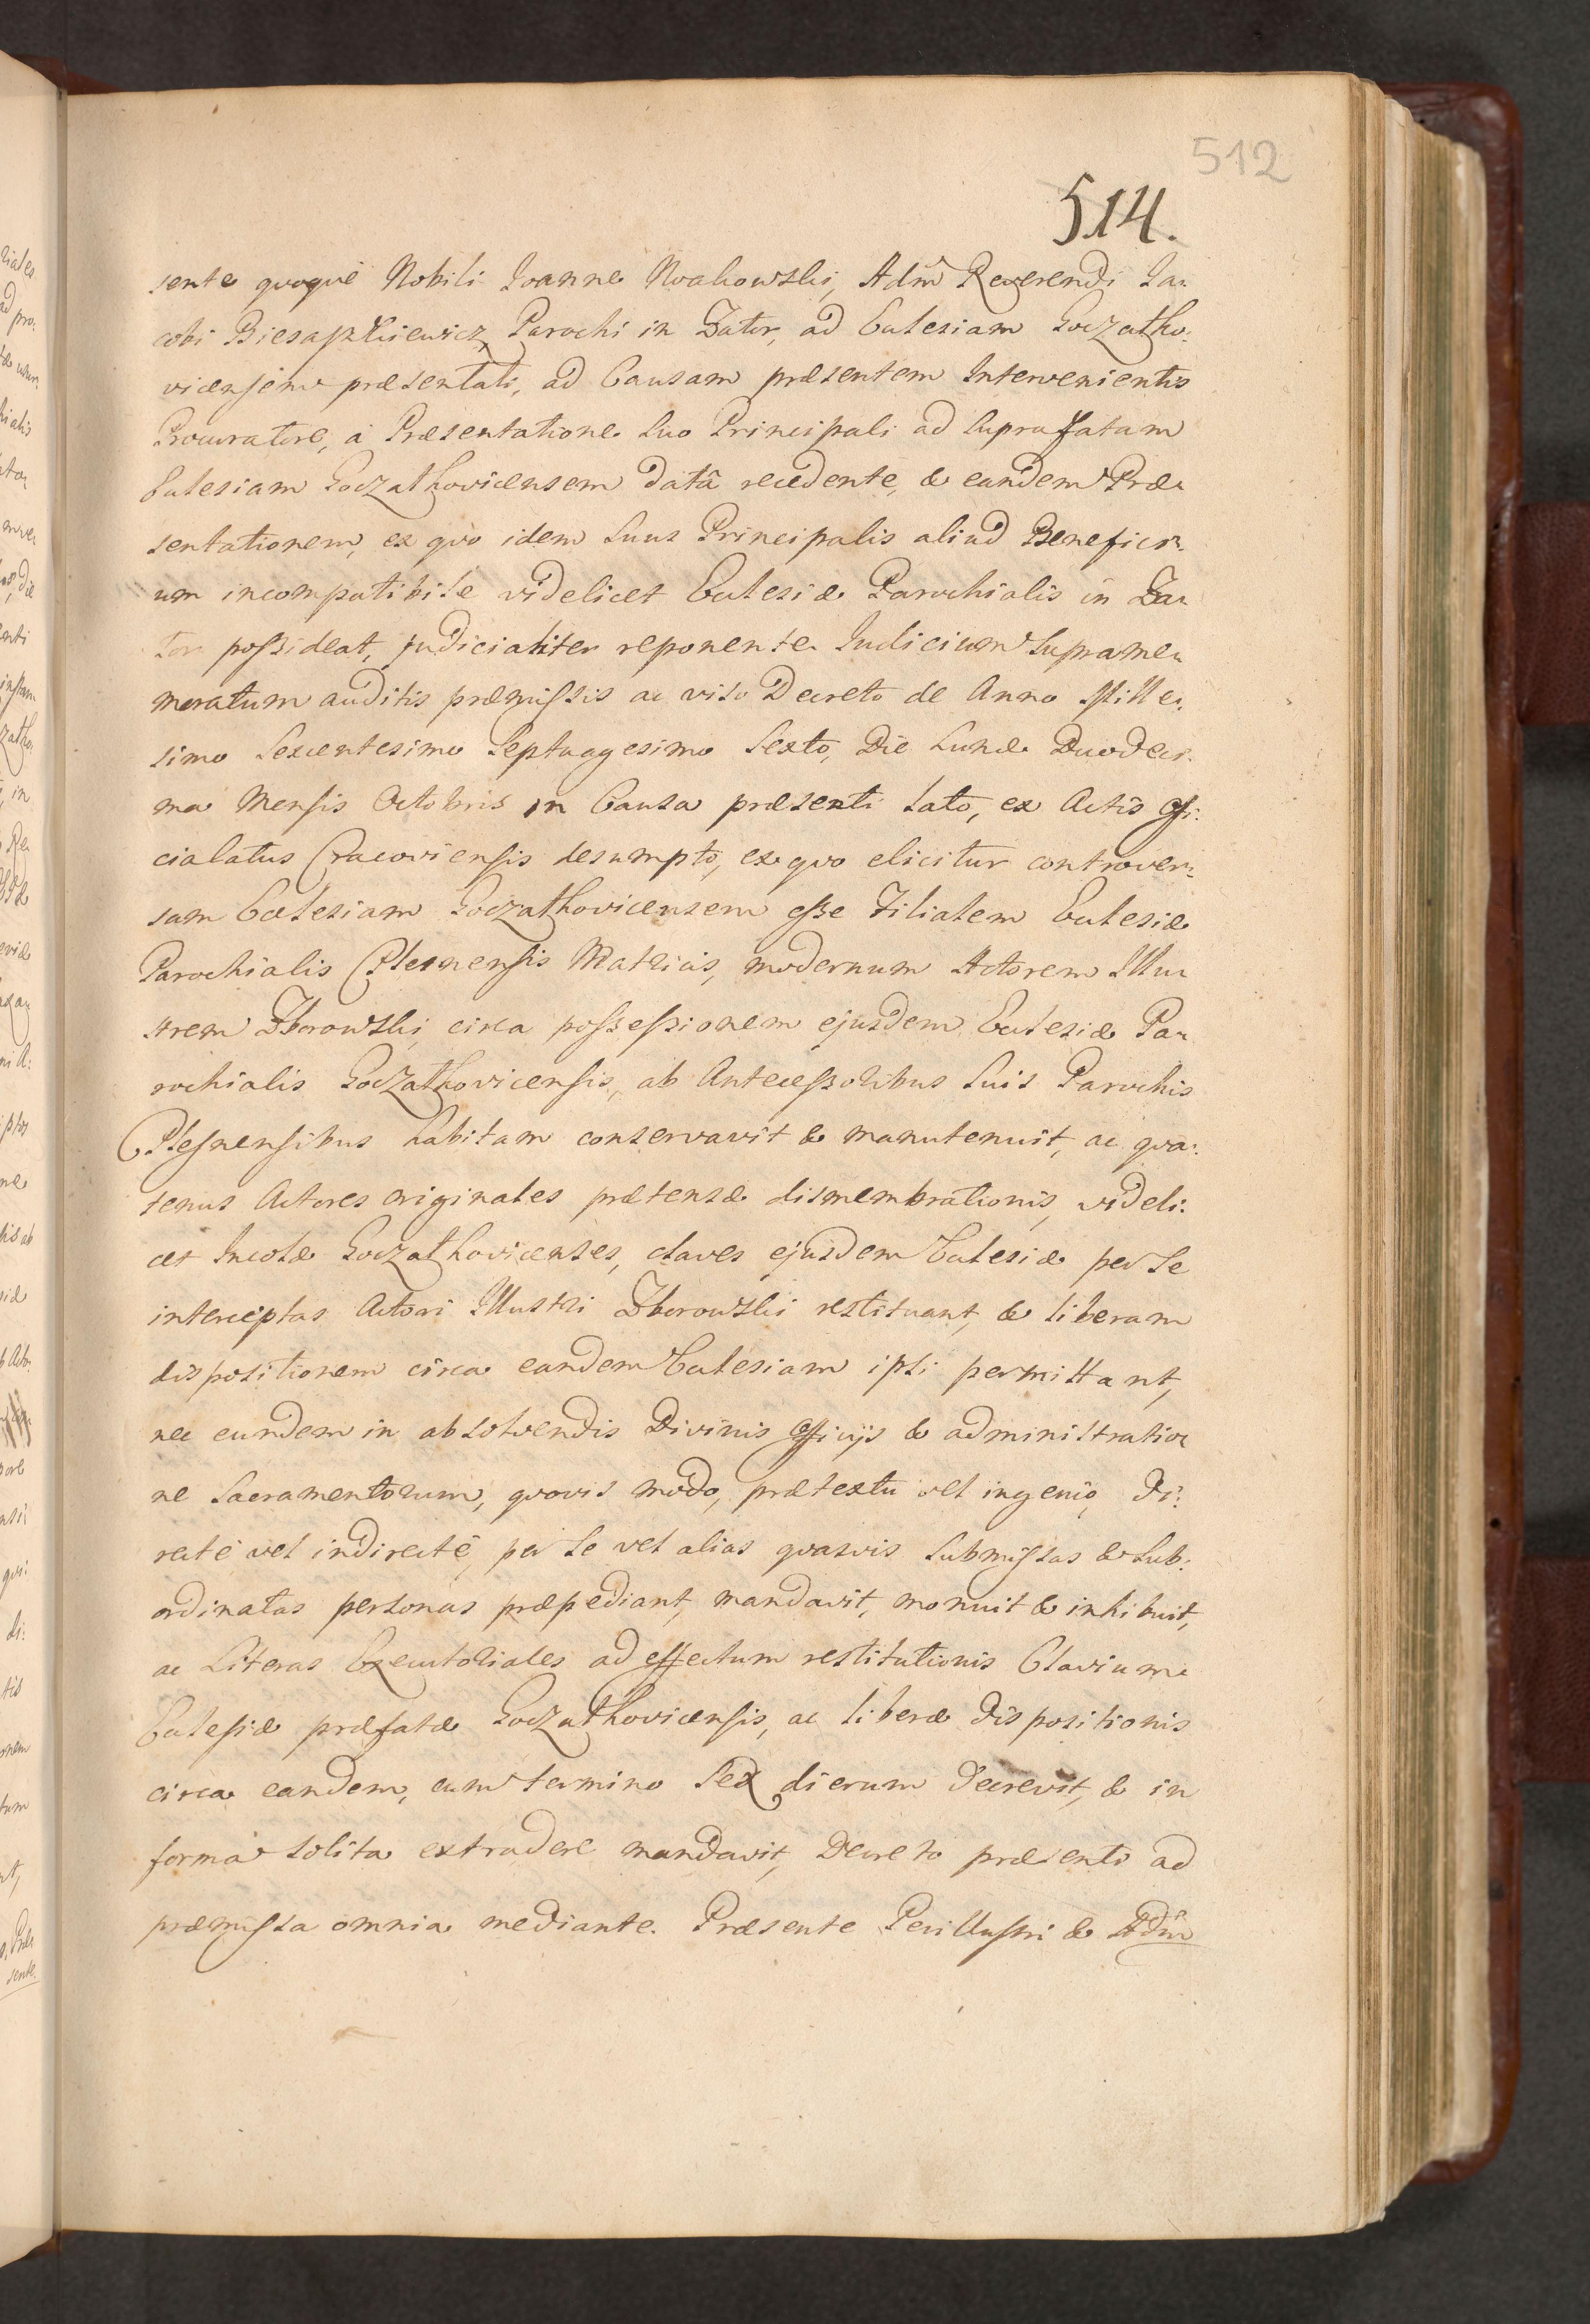 512
514.
sente quoque Nobili Joanne Noakowski, Adm̃ Reverendi Ja:
cobi Biesaprkiewicz Parochi in Zator, ad Ecclesiam Goczatko:
vicensem præsentati, ad Causam præsentem Intervenientis
Procuratore, à Præsentatione Suo Principali ad Supra fatam
Ecclesiam Goczalkovicensem datã recedente, & eandem Præ:
sentationem, ex quo idem Suus Principalis aliud Benefici:
um incompatibile videlicet Ecclesiæ Parochialis in Za:
tor possideat, judicialiter reponente. Judicium Suprame:
moratum auditis præmissis ac viso Decreto de Anno Mille:
simo Sexcentesimo Septuagesimo Sexto, Die Lunæ Duodeci:
ma Mensis Octobris in Causa præsenti lato, ex Actis Offi:
cialatus Cracoviensis desumpto, ex quo elicitur controver:
sam Ecclesiam Goczalkovicensem esse Filialem Ecclesiæ
Parochialis Plesnensis Matricis, modernum Actorem Illu:
strem Zborowski, circa possessionem ejusdem Ecclesiæ Pa:
rochialis Goczalkovicensis, ab Antecessoribus Suis Parochis
Plesnensibus habitam conservavit & manutenuit, ac qua:
tenus Actores originales prætensæ dismembrationis, videli:
cet Incolæ Goczalkovicenses, claves ejusdem Ecclesiæ per Se
interceptas Actori Illustri Zborowski restituant, & liberam
dispositionem circa eandem Ecclesiam ipsi permittant,
nec eundem in absolvendis Divinis Officijs & administratio:
ne Sacramentorum, quovis modo, prætextu vel ingenio, Di:
rectè vel indirectè, per Se vel alias quasvis Submissas & Sub:
ordinatas personas præpediant, mandavit, monuit & inhibuit,
ac Literas Executoriales ad effectum restitutionis Clavium
Ecclesiæ præfatæ Goczalkovicensis, ac liberæ dispositionis
circa eandem, cum termino Sex dierum decrevit, & in
forma solita extradere mandavit, Decreto præsenti ad
præmissa omnia mediante. Præsente Perillustri & Adm̃